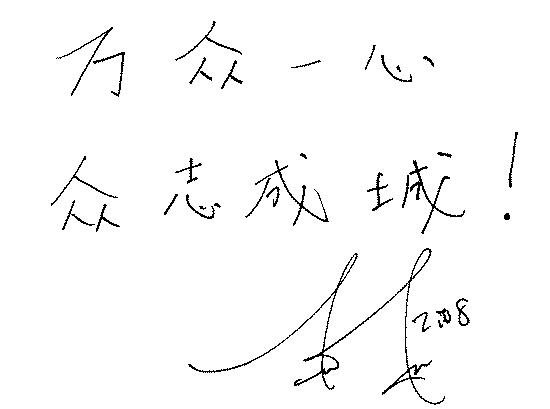 万众一心
众志成城!
2008